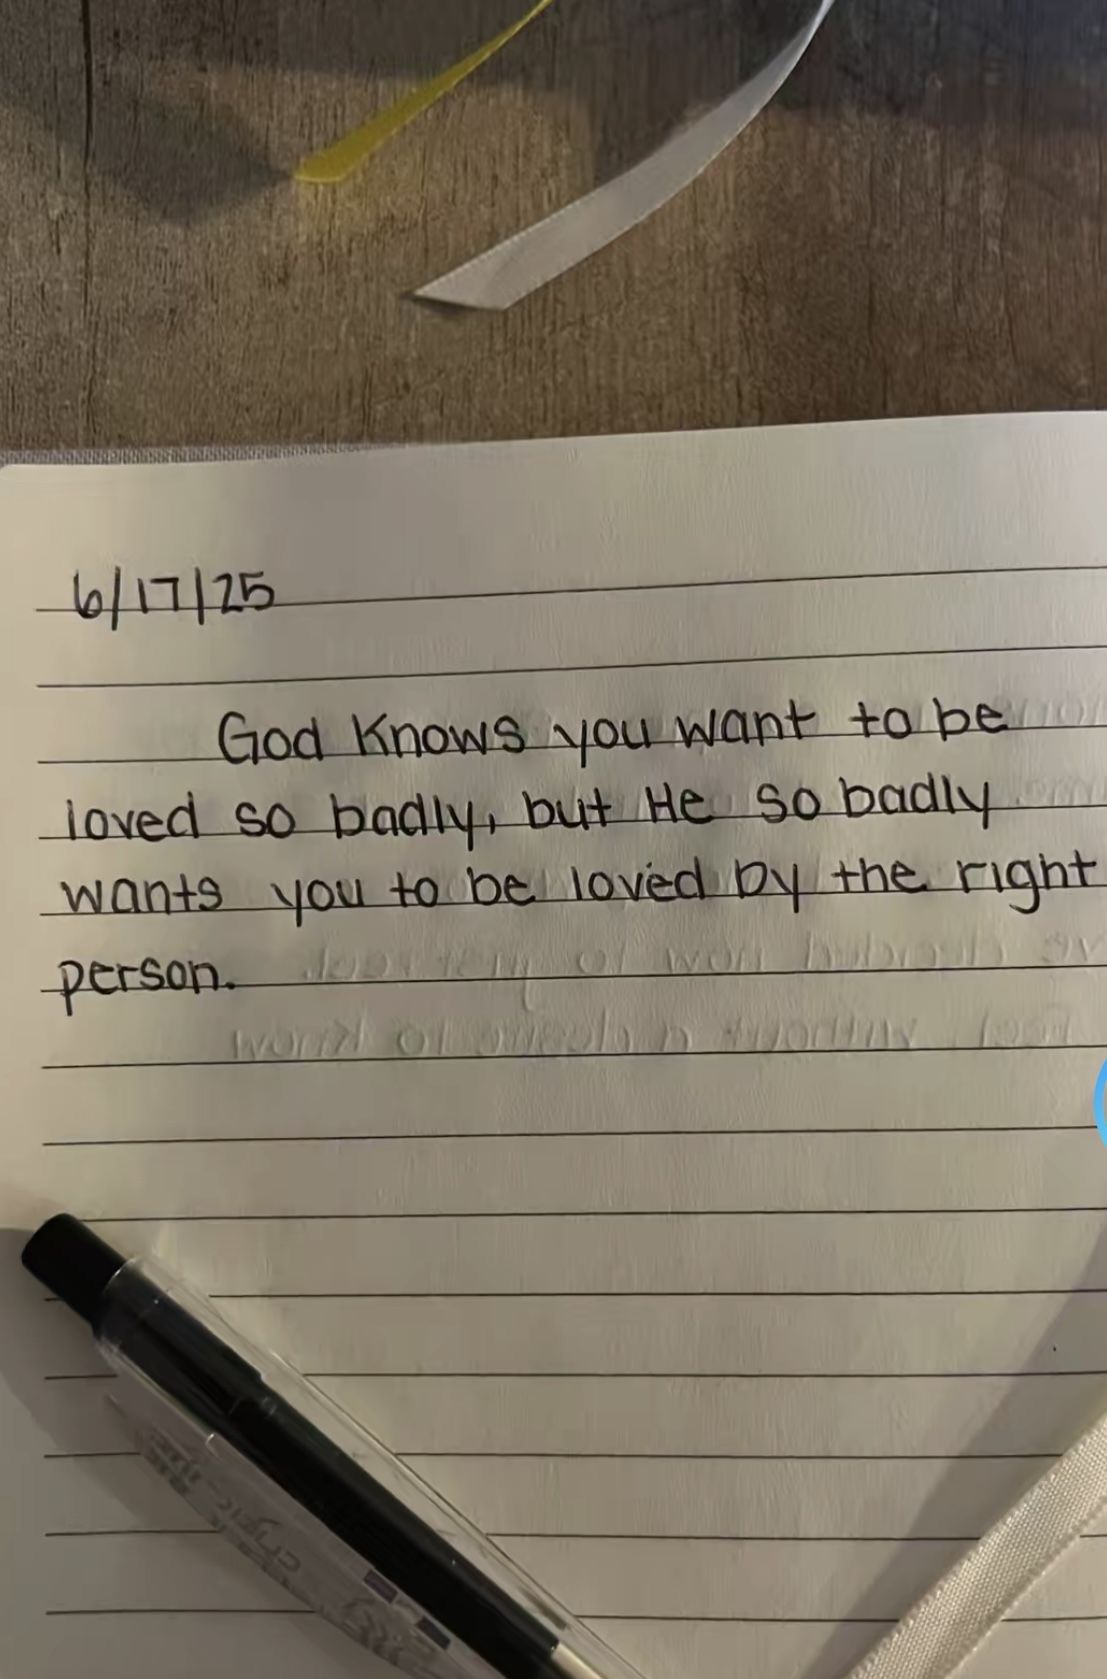 6/17/25
God knows you want to be
loved so badly, but He so badly
wants you to be loved by the right
person.